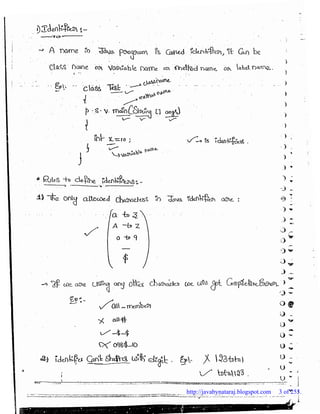 1) Identifiers :-
→ A name in Java program is called identifier, it can be
class name or variable name or method name or label name.
Eg:- class Test → classname
{ → method name
p . s . v . main(String [] args)
{
int x = 10 ; ✓ → is identifiers .
} → variable name
}
* Rules to define identifiers :-
1) The only allowed characters in Java identifiers are :
a to z
A to Z
0 to 9
_
$
→ If we are using any other characters we will get CompiletimeError.
Eg:- ✓ all_members
✗ all#
✓ _$_$
2) identifiers can't starts with digit. Eg:- ✗ 123total
✓ total123 .
http://javabynataraj.blogspot.com 3 of 255.